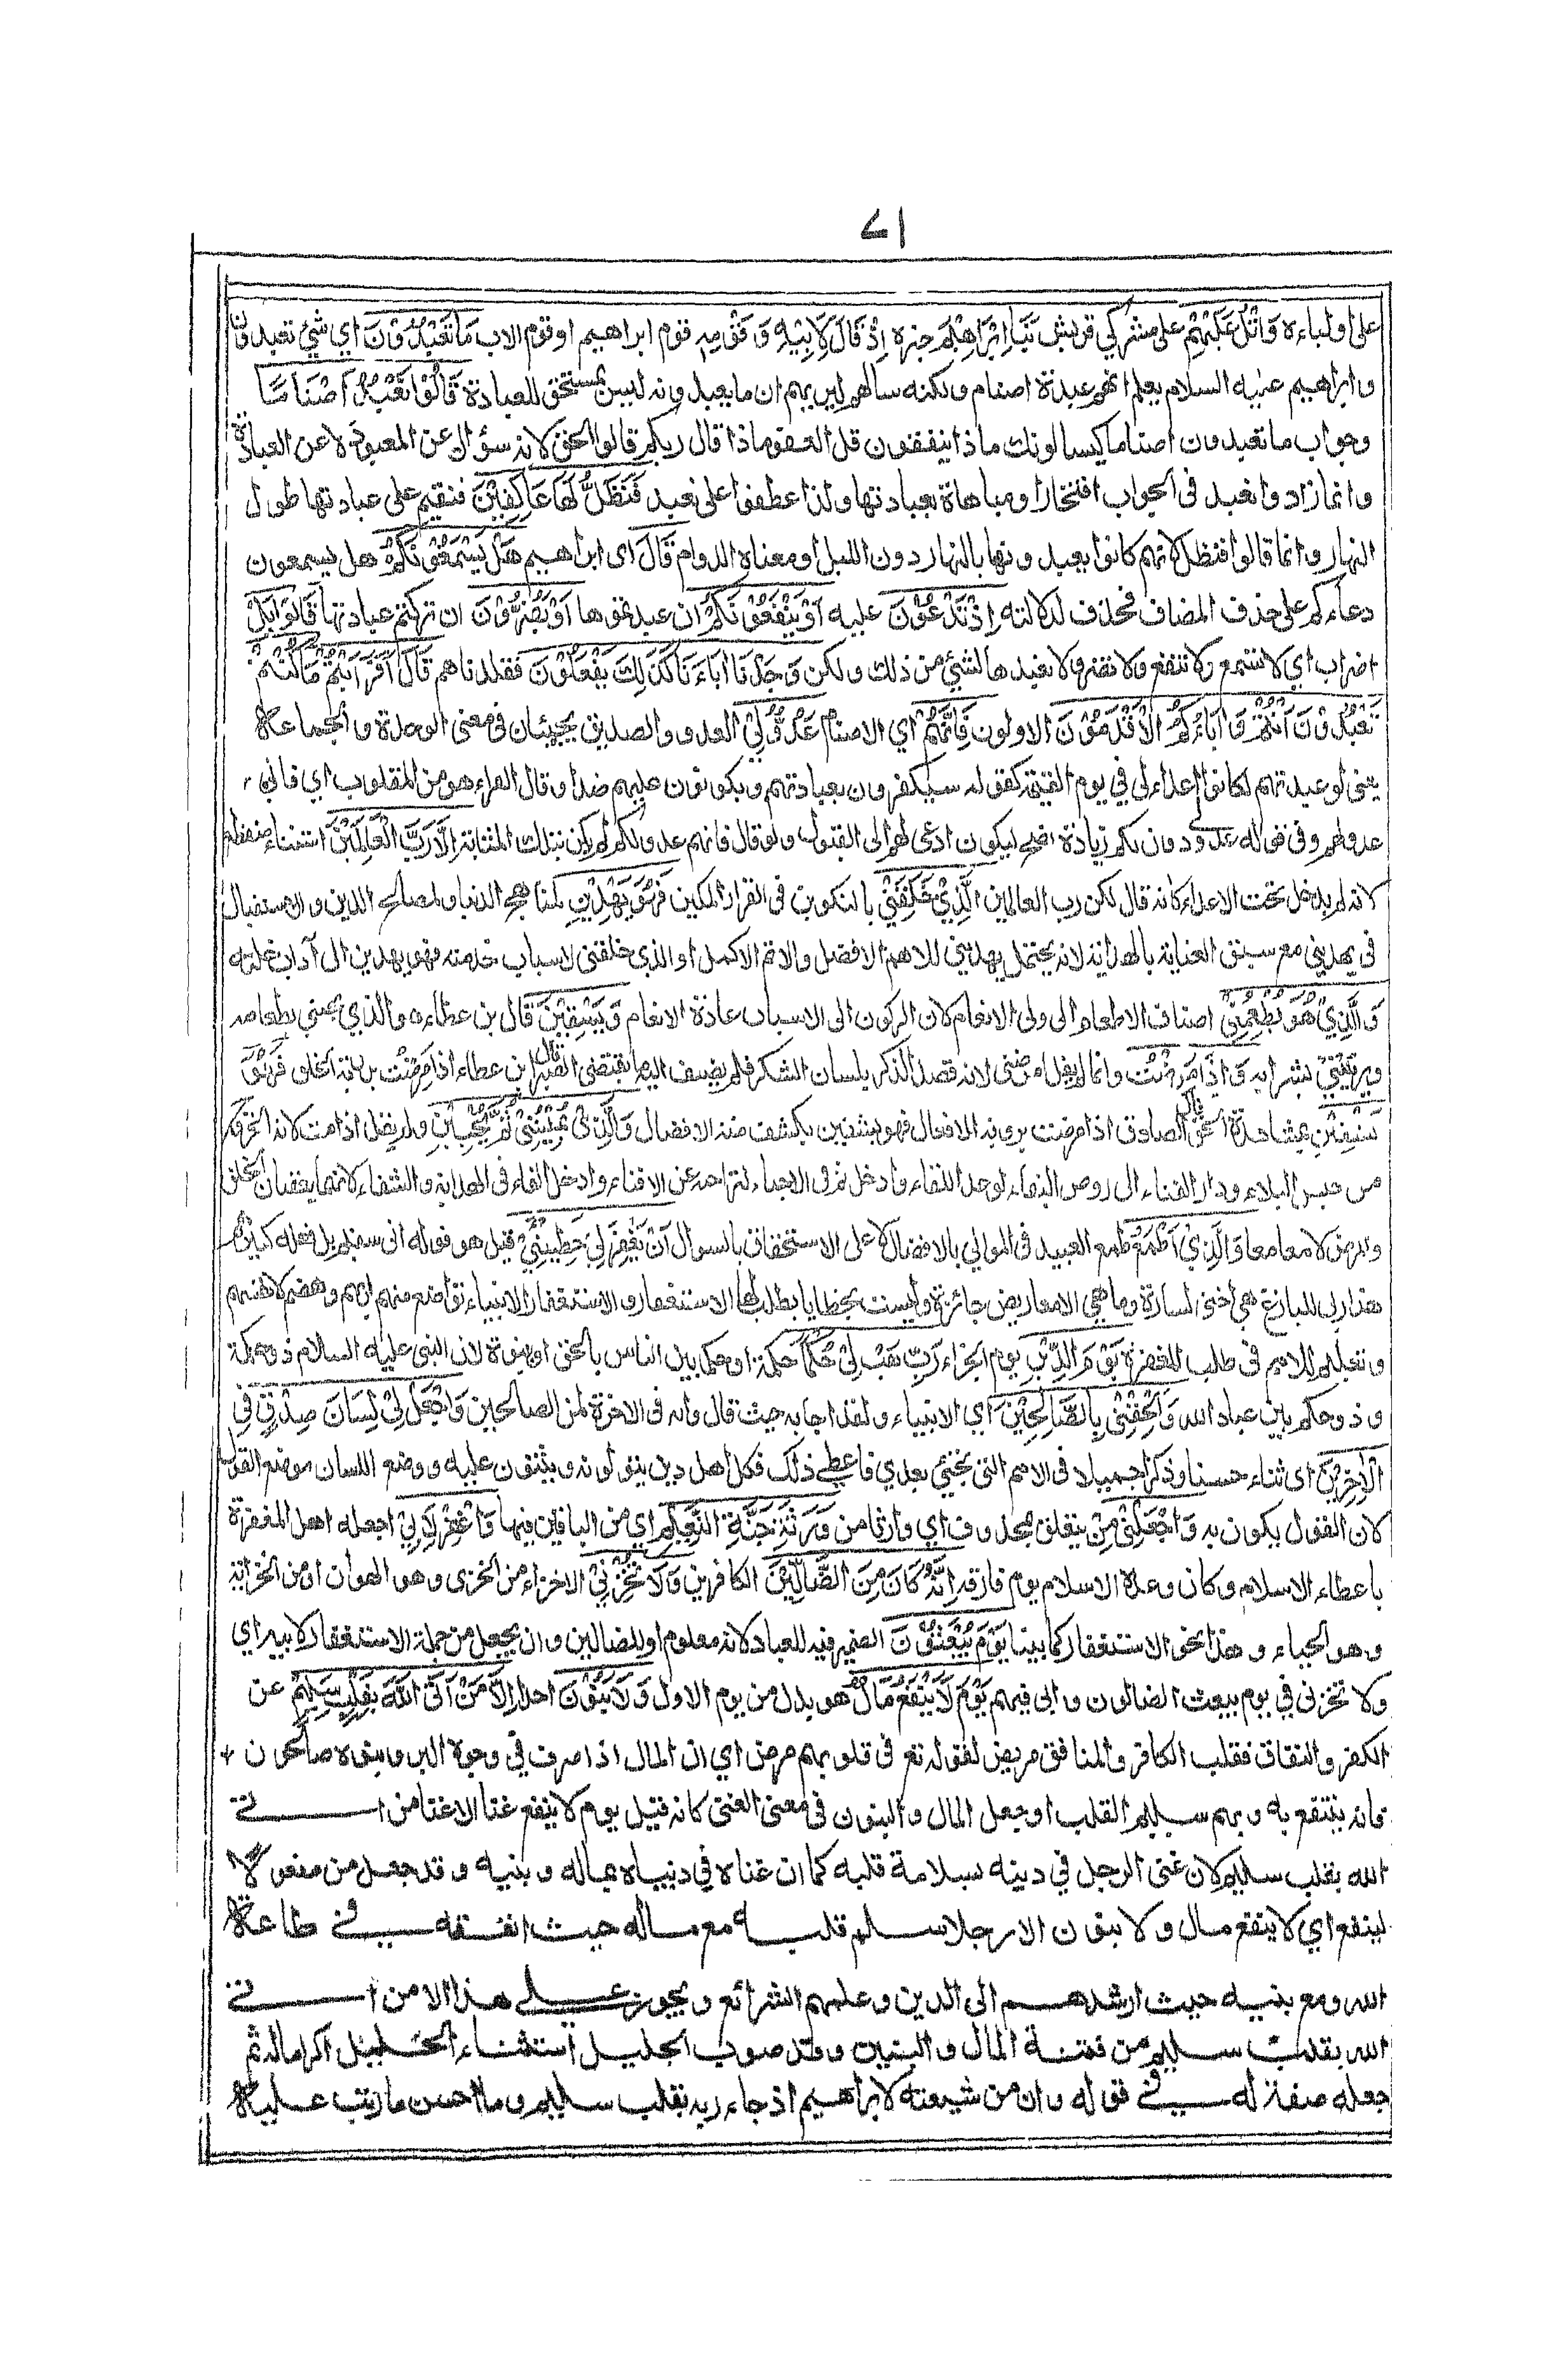 ٧١
على اولياءه وَاتْلُ عَلَيْهِمْ على مشركي قريش نَبَأَ اِبْرَاهِيْمَ خبره اِذْ قَالَ لِاَبِيْهِ وَقَوْمِهٖ قوم ابراهيم او قوم الاب مَا تَعْبُدُوْنَ اي شيئ تعبدون
وابراهيم عليه السلام يعلم انهم عبدة اصنام ولكنه سالهم ليريهم ان ما يعبدونه ليس بمستحق للعبادة قَالُوْا نَعْبُدُ اَصْنَامًا
وجواب ما تعبدون اصناما كيسالونك ماذا ينفقون قل العفو ماذا قال ربكم قالوا الحق لانه سؤال عن المعبود لا عن العبادة
وانما زادوا نعبد فى الجواب افتخارا ومباهاة بعبادتها ولذا عطفوا على نعبد فَنَظَلُّ لَهَا عَاكِفِيْنَ فنقيم على عبادتها طول
النهار وانما قالوا فنظل لانهم كانوا يعبدونها بالنهار دون الليل او معناه الدوام قَالَ اى ابراهيم هَلْ يَسْمَعُوْنَكُمْ هل يسمعون
دعاءكم على حذف المضاف فحذف لدلالته اِذْ تَدْعُوْنَ عليه اَوْ يَنْفَعُوْنَكُمْ ان عبدتموها اَوْ يَضُرُّوْنَ ان تركتم عبادتها قَالُوْا بَلْ
اضراب اي لا تسمع ولا تنفع ولا تضر ولا نعبدها لشيئ من ذلك ولكن وَجَدْنَا اٰبَاءَنَا كَذٰلِكَ يَفْعَلُوْنَ فقلدناهم قَالَ اَفَرَاَيْتُمْ مَا كُنْتُمْ
تَعْبُدُوْنَ اَنْتُمْ وَاٰبَاءُكُمُ الْاَقْدَمُوْنَ الاولون فَاِنَّهُمْ اي الاصنام عَدُوٌّ لِيْ العدو والصديق يجيئان فى معنى الوحدة والجماعة
يعنى لو عبدتهم لكانوا اعداء لى في يوم القيمة كقوله سيكفرون بعبادتهم ويكونون عليهم ضدا وقال الفراء هو من المقلوب اي فانى
عدو لهم وفى قوله عدو لى دون لكم زيادة نصح ليكون ادعى لهم الى القبول ولو قال فانهم عدو لكم لم يكن بتلك المثابة اِلَّا رَبَّ الْعَالَمِيْنَ استثناء منقطع
لانه لم يدخل تحت الاعداء كانه قال لكن رب العالمين الَّذِيْ خَلَقَنِيْ بالتكوين فى القرار المكين فَهُوَ يَهْدِيْنِ لمناهج الدنيا ولمصالح الدين والاستقبال
فى يهديني مع سبق العناية بالهداية لانه يحتمل يهديني للاهم الافضل والاتم الاكمل او الذى خلقنى لاسباب خدمته فهو يهدين الى آداب خلته
وَالَّذِيْ هُوَ يُطْعِمُنِيْ اضاف الاطعام الى ولى الانعام لان الركون الى الاسباب عادة الانعام وَيَسْقِيْنِ قال بن عطاءه والذي يحيني بطعامه
ويرويني بشرابه وَاِذَا مَرِضْتُ وانما لم يقل امرضنى لانه قصد الذكر بلسان الشكر فلم يضف اليه ما يقتضى الضر قال ابن عطاء اذا مرضت برؤية الخلق فَهُوَ
يَشْفِيْنِ بمشاهدة الحق قال الصادق اذا مرضت برؤية الافعال فهو يشفين بكشف منة الافضال وَالَّذِيْ يُمِيْتُنِيْ ثُمَّ يُحْيِيْنِ ولم يقل اذا مت لانه الخروج
من حبس البلاء ودار الفناء الى روض البقاء لوعد اللقاء وادخل ثم فى الاحياء لتراخيه عن الافناء وادخل الفاء فى الهداية والشفاء لانهما يعقبان الخلق
والمرض لا معا معا وَالَّذِيْ اَطْمَعُ طمع العبيد فى الموالي بالافضال لا على الاستحقاق بالسوال اَنْ يَغْفِرَ لِيْ خَطِيْئَتِيْ قيل هو قوله انى سقيم بل فعله كبيرهم
هذا ربى للبازغ هى اختى لسارة وما هى الا معاريض جائزة وليست بخطايا يطلب لها الاستغفار واستغفار الانبياء تواضع منهم لربهم وهضم لانفسهم
وتعليم للامم فى طلب المغفرة يَوْمَ الدِّيْنِ يوم الجزاء رَبِّ هَبْ لِيْ حُكْمًا حكمة او حكما بين الناس بالحق او نبوة لان النبى عليه السلام ذو حكمة
وذو حكم بين عباد الله وَاَلْحِقْنِيْ بِالصَّالِحِيْنَ اي الانبياء ولقد اجابه حيث قال وانه فى الاخرة لمن الصالحين وَاجْعَلْ لِيْ لِسَانَ صِدْقٍ فِي
الْاٰخِرِيْنَ اى ثناء حسنا وذكرا جميلا فى الامم التى تجيئ بعدي فاعطي ذلك فكل اهل دين يتولونه ويثنون عليه ووضع اللسان موضع القول
لان القول يكون به وَاجْعَلْنِيْ مِنْ يتعلق بمحذوف اي وارثا من وَرَثَةِ جَنَّةِ النَّعِيْمِ اي من الباقين فيها وَاغْفِرْ لِاَبِيْ اجعله اهل المغفرة
باعطاء الاسلام وكان وعده الاسلام يوم فارقه اِنَّهٗ كَانَ مِنَ الضَّالِّيْنَ الكافرين وَلَا تُخْزِنِيْ الاخزاء من الخزى وهو الهوان او من الخزاية
وهو الحياء وهذا نحو الاستغفار كما بينا يَوْمَ يُبْعَثُوْنَ الضمير فيه للعباد لانه معلوم او للضالين وان يجعل من جملة الاستغفار لابيه اي
ولا تخزنى في يوم يبعث الضالون وابى فيهم يَوْمَ لَا يَنْفَعُ مَالٌ هو بدل من يوم الاول وَلَا بَنُوْنَ احدا اِلَّا مَنْ اَتَى اللّٰهَ بِقَلْبٍ سَلِيْمٍ عن
الكفر والنفاق فقلب الكافر والمنافق مريض لقوله تع فى قلوبهم مرض اي ان المال اذا صرف في وجوه البر وبنوه صالحون
فانه ينتفع به وبهم سليم القلب او جعل المال والبنون فى معنى الغنى كانه قيل يوم لا ينفع غنا الا غنا من اتى
الله بقلب سليم لان غنى الرجل في دينه سبلامة قلبه كما ان غناه في دنياه بماله وبنيه وقد جعل من مفعولا
لينفع اي لا ينفع مال ولا بنون الا رجلا سلم قلبه مع ماله حيث انفقه في طاعة
الله ومع بنيه حيث ارشدهم الى الدين وعلمهم الشرائع ويجوز على هذا الا من اتى
الله بقلب سليم من فتنة المال والبنين وقد صوب الجليل استثناء الخليل اكراما له ثم
جعله صفة له في قوله وان من شيعته لابراهيم اذ جاء ربه بقلب سليم وما احسن ما رتب عليه